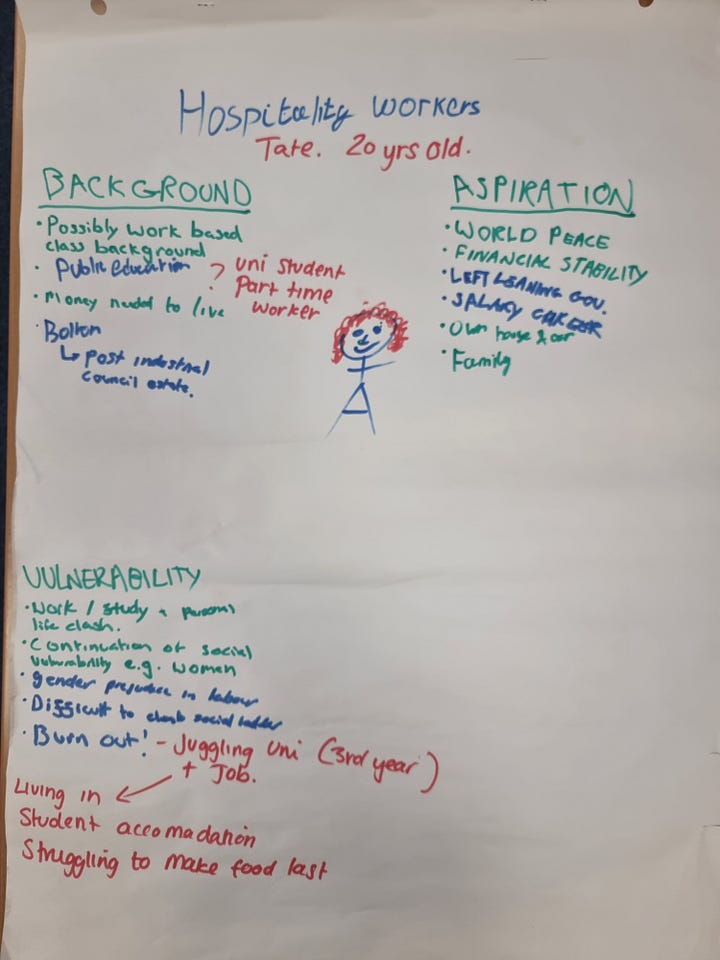 Hospitality workers
Tate. 20 yrs old.
BACKGROUND
• Possibly work based
class background
• Public education
? uni student
Part time
worker
• Money needed to live
• Bolton
↳ post industrial
council estate.
ASPIRATION
• WORLD PEACE
• FINANCIAL STABILITY
• LEFT LEANING GOV.
• SALARY CAREER
• Own house & car
• Family
VULNERABILITY
• Work / study + personal
life clash.
• Continuation of social
vulnerability e.g. women
• gender prejudice in labour
• Difficult to climb social ladder
• Burn out! - Juggling uni (3rd year)
+ Job.
Living in
Student accomadation
Struggling to make food last